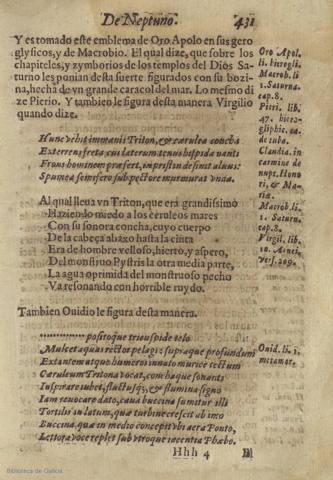 De Neptuno. 431
Y es tomado este emblema de Oro Apolo en sus gero
glyficos, y de Macrobio. El qual dize, que sobre los
chapiteles, y zymborios de los templos del Dios Sa-
turno les ponian desta suerte figurados con su bozi-
na, hecha de vn grande caracol del mar. Lo mesmo di
ze Pierio. Y tambien le figura desta manera Virgilio
quando dize.
Oro Apol.
li. hierogli.
Macrob. li
1. Satura.
cap. 8.
Pieri. lib.
47. hiero-
gliphic. ca.
de tuba.
Claudia. in
carmine de
nupt. Hono
ri, & Ma-
ria.
Macrob. li.
1. Satur.
cap. 8.
Virgil. lib.
10. Aenei.
vers. 209.
Hunc vehit immanis Triton, & cærulea concha
Exterrens freta, cui laterum tenus hispida nanti
Frons hominem præfert, in pristin desinit aluus:
Spumea semifero sub pectore murmurat vnda.
Al qual lleua vn Triton, que era grandissimo
Haziendo miedo a los ceruleos mares
Con su sonora concha, cuyo cuerpo
De la cabeça abaxo hasta la cinta
Era de hombre velloso, hierto, y aspero,
Del monstruo Pystris la otra media parte,
La agua oprimida del monstruoso pecho
Va resonando con horrible ruydo.
Tambien Ouidio le figura desta manera.
............ positoque tricuspide telo
Mulcet aquas rector pelagi: supraque profundum
Extantem atque humeros innato murice tectum
Cæruleum Tritona vocat, conchaque sonanti
Inspirare iubet, fluctusq́;, & flumina signo
Iam reuocare dato, caua buccina sumitur illi
Tortilis in latum, quæ turbine crescit ab imo
Buccina, quæ in medio concepit vbi aera Ponto,
Littora voce replet sub vtroque iacentia Phæbo.
Ouid. li. 1.
mitamor.
Hhh 4
Biblioteca de Galicia